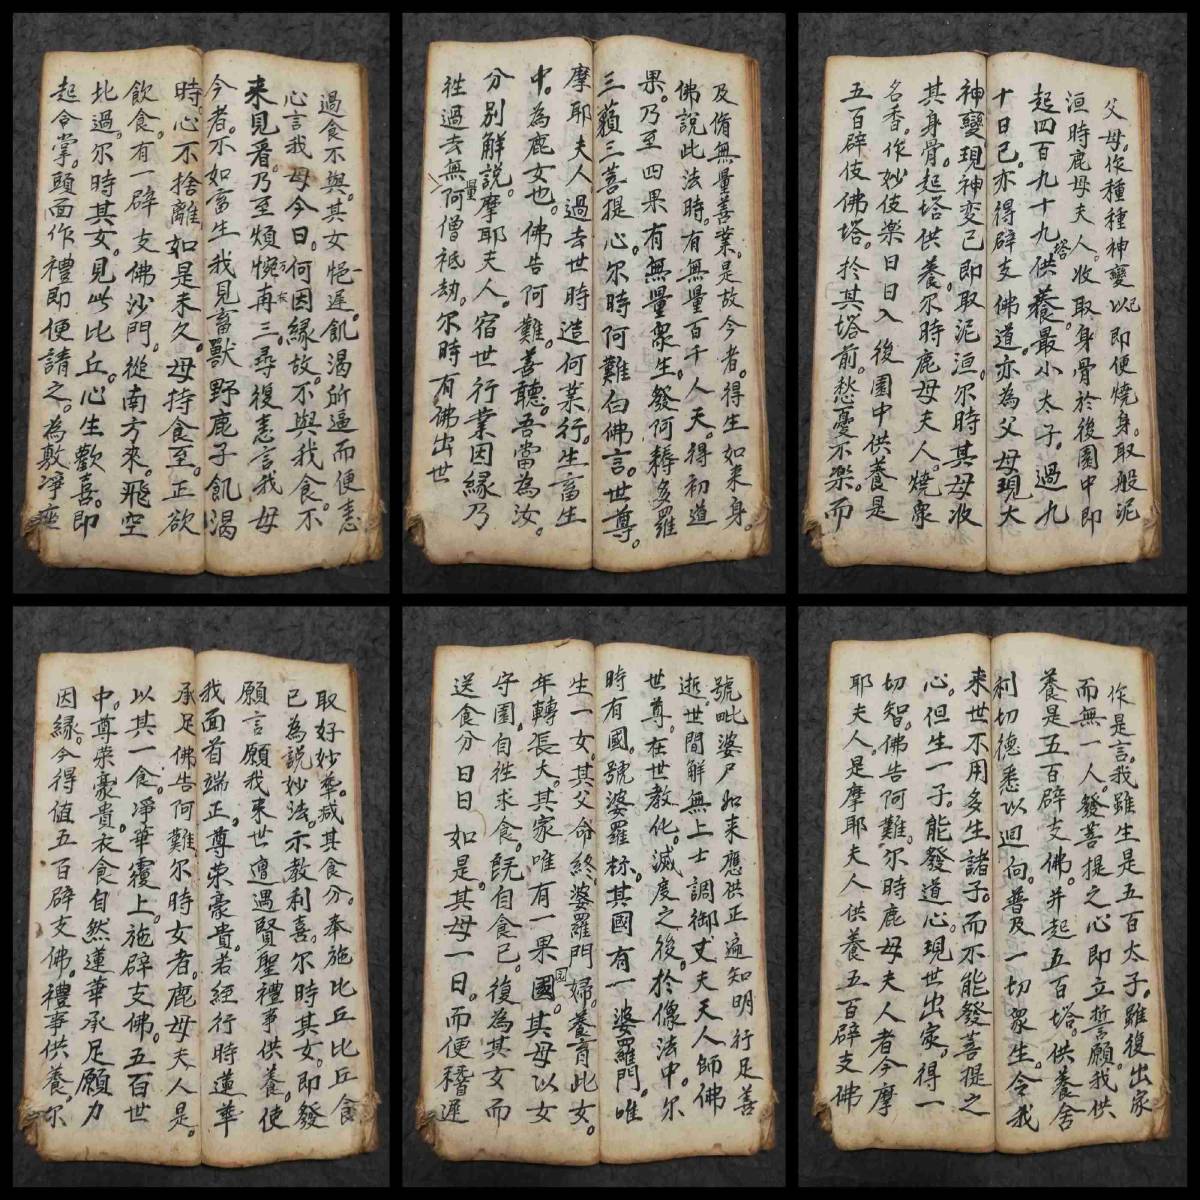 父母。作種種神變以已即便燒身。取般泥
洹時鹿母夫人。收取身骨於後園中即
起四百九十九塔供養。最小太子。過九
十日已。亦得辟支佛道。亦為父母現大
神變。現神变已即取泥洹。尔時其母收
其身骨。起塔供養。尔時鹿母夫人。燒衆
名香。作妙伎楽日日入後園中供養是
五百辟伎佛塔。扵其塔前。愁憂不樂。而
作是言。我雖生是五百太子。雖復出家
而無一人。發菩提之心即立誓願我供
養是五百辟支佛。并起五百塔。供養舍
利切德悉以迴向。普及一切衆生。令我
来世不用多生諸子。而不能發菩提之
心。但生一子。能發道心。現世出家。得一
切智。佛告阿難。尔時鹿母夫人者今摩
耶夫人。是摩耶夫人供養五百辟支佛
及脩無量善業。是故今者。得生如来身。
佛說此法時。有無量百千人天。得初道
果。乃至四果有無量衆生。發阿耨多羅
三藐三菩提心。尔時阿難白佛言。世尊。
摩耶夫人過去世時造何業行。生畜生
中。為鹿女也。佛告阿難。善聽。吾當為汝。
分別解說。摩耶夫人。宿世行業因緣乃
往過去無量阿僧祇劫。尔時有佛出世
號毗婆尸如来應供正遍知明行足善
逝。世間解無上士調御丈夫天人師佛
世尊。在世教化。滅度之後。於像法中。尔
時有國。號婆羅柰。其國有一婆羅門。唯
生一女。其父命終。婆羅門婦。養育此女。
年轉長大。其家唯有一果國園。其母以女
守園。自往求食。既自食已。復為其女而
送食分日日如是。其母一日。而便稽遲
過食不與。其女悒遲。飢渴所逼而便恚
心言我母今日。何因緣故。不與我食。不
来見看。乃至煩惋再三。尋復恚言我母
今者。不如畜生我見畜獸野鹿子飢渴
時。心不捨離。如是未久。母持食至。正欲
飲食。有一辟支佛沙門。從南方来。飛空
北過。尔時其女。見此比丘。心生歡喜。即
起合掌。頭面作禮即便請之。為敷淨座
取好妙華。咸其食分。奉施比丘比丘食
已為說妙法。示教利喜。尔時其女。即發
願言願我来世遭遇賢聖禮事供養。使
我面首端正。尊荣豪貴。若經行時蓮華
承足佛告阿難。尔時女者。鹿母夫人是。
以其一食。淨華覆上。施辟支佛。五百世
中。尊荣豪貴。衣食自然蓮華承足願力
因緣。今得值五百辟支佛。禮事供養。尔